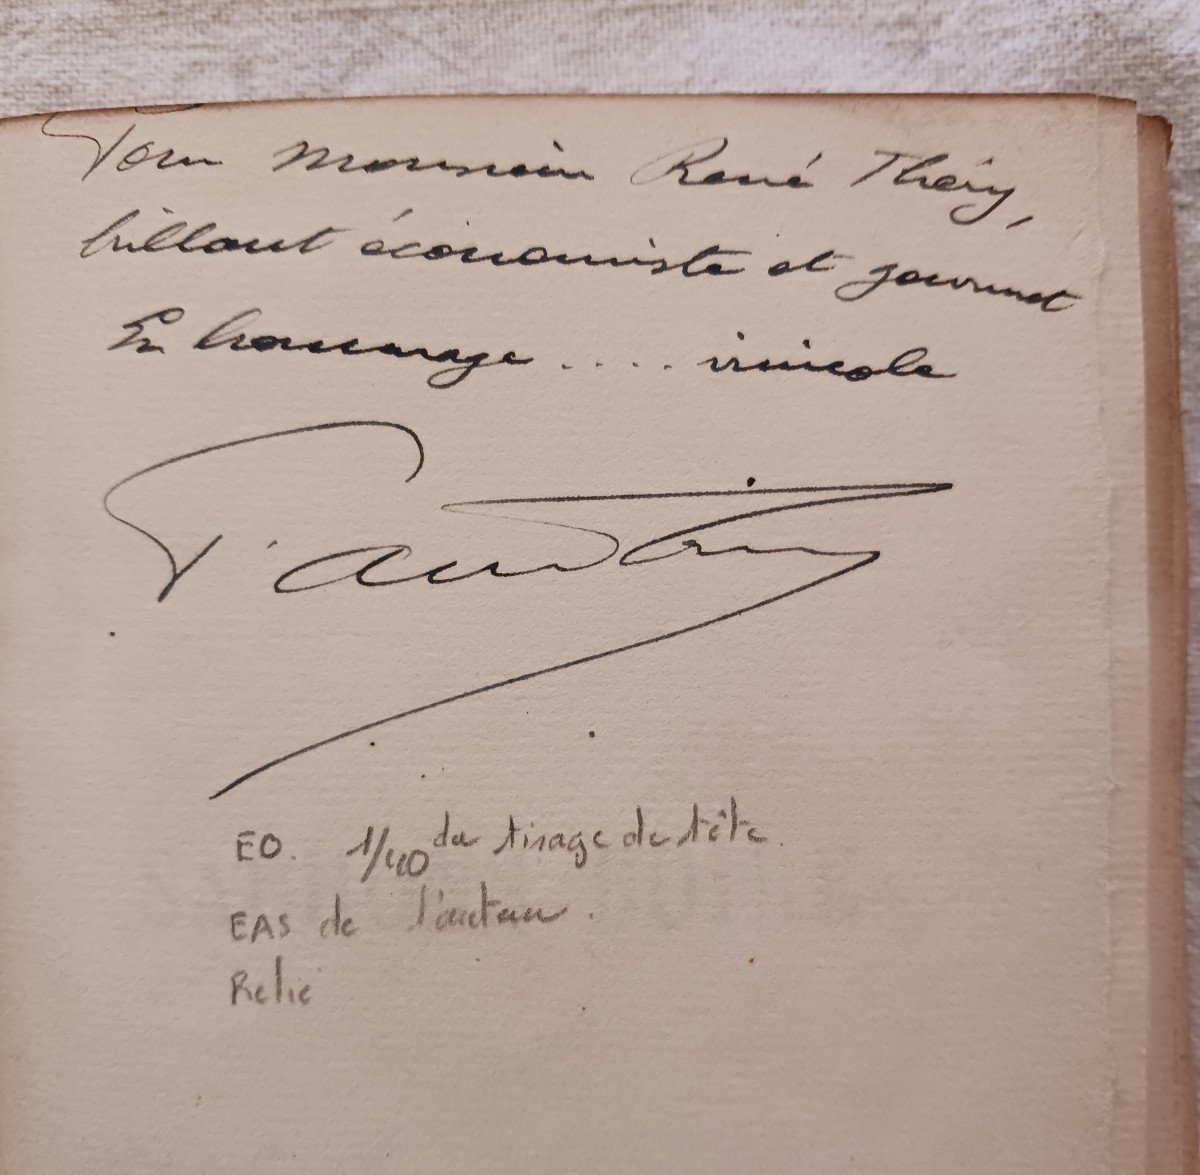 Pour Monsieur René Théry,
brillant économiste et gourmet
En hommage .... vinicole
EO. 1/40 du tirage de tête.
EAS de l'auteur.
Relié